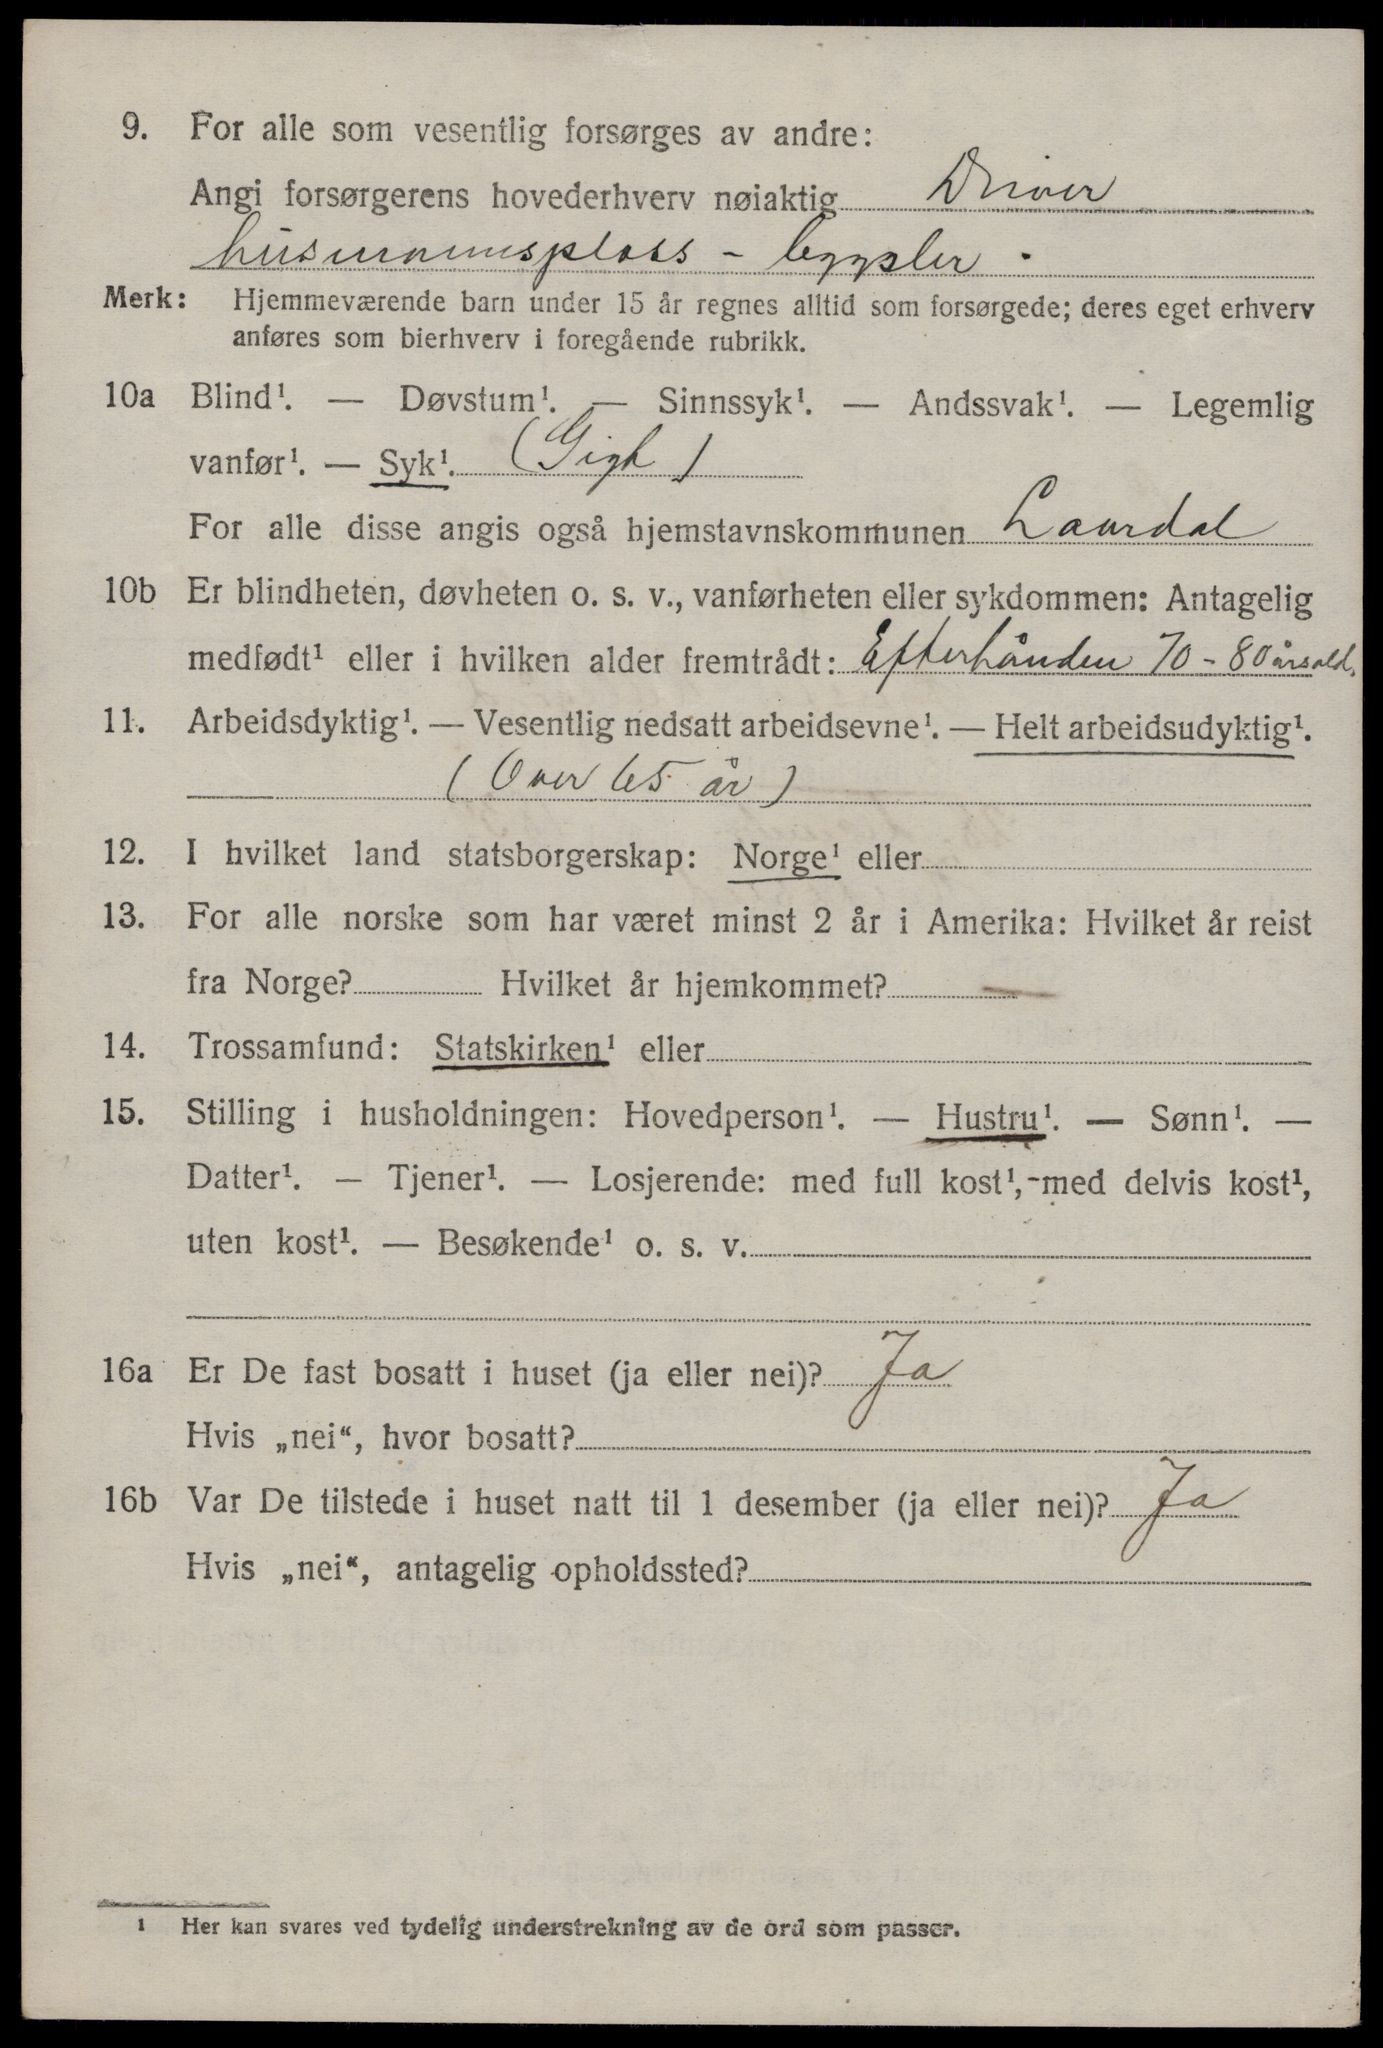 9. For alle som vesentlig forsørges av andre:
Angi forsørgerens hovederhverv nøiaktig Driver
husmannsplass - bygsler.
Merk: Hjemmeværende barn under 15 år regnes alltid som forsørgede; deres eget erhverv
anføres som bierhverv i foregående rubrikk.
10a Blind¹. — Døvstum¹. — Sinnssyk¹. — Andssvak¹. — Legemlig
vanfør¹. — Syk¹. (Gigt)
For alle disse angis også hjemstavnskommunen Laurdal
10b Er blindheten, døvheten o. s. v., vanførheten eller sykdommen: Antagelig
medfødt¹ eller i hvilken alder fremtrådt: Efterhånden 70 - 80 årsald.
11. Arbeidsdyktig¹. — Vesentlig nedsatt arbeidsevne¹. — Helt arbeidsudyktig¹.
(Over 65 år)
12. I hvilket land statsborgerskap: Norge¹ eller
13. For alle norske som har været minst 2 år i Amerika: Hvilket år reist
fra Norge? Hvilket år hjemkommet? —
14. Trossamfund: Statskirken¹ eller
15. Stilling i husholdningen: Hovedperson¹. — Hustru¹. — Sønn¹. —
Datter¹. — Tjener¹. — Losjerende: med full kost¹, med delvis kost¹,
uten kost¹. — Besøkende¹ o. s. v.
16a Er De fast bosatt i huset (ja eller nei)? Ja
Hvis „nei“, hvor bosatt?
16b Var De tilstede i huset natt til 1 desember (ja eller nei)? Ja
Hvis „nei“, antagelig opholdssted?
¹ Her kan svares ved tydelig understrekning av de ord som passer.